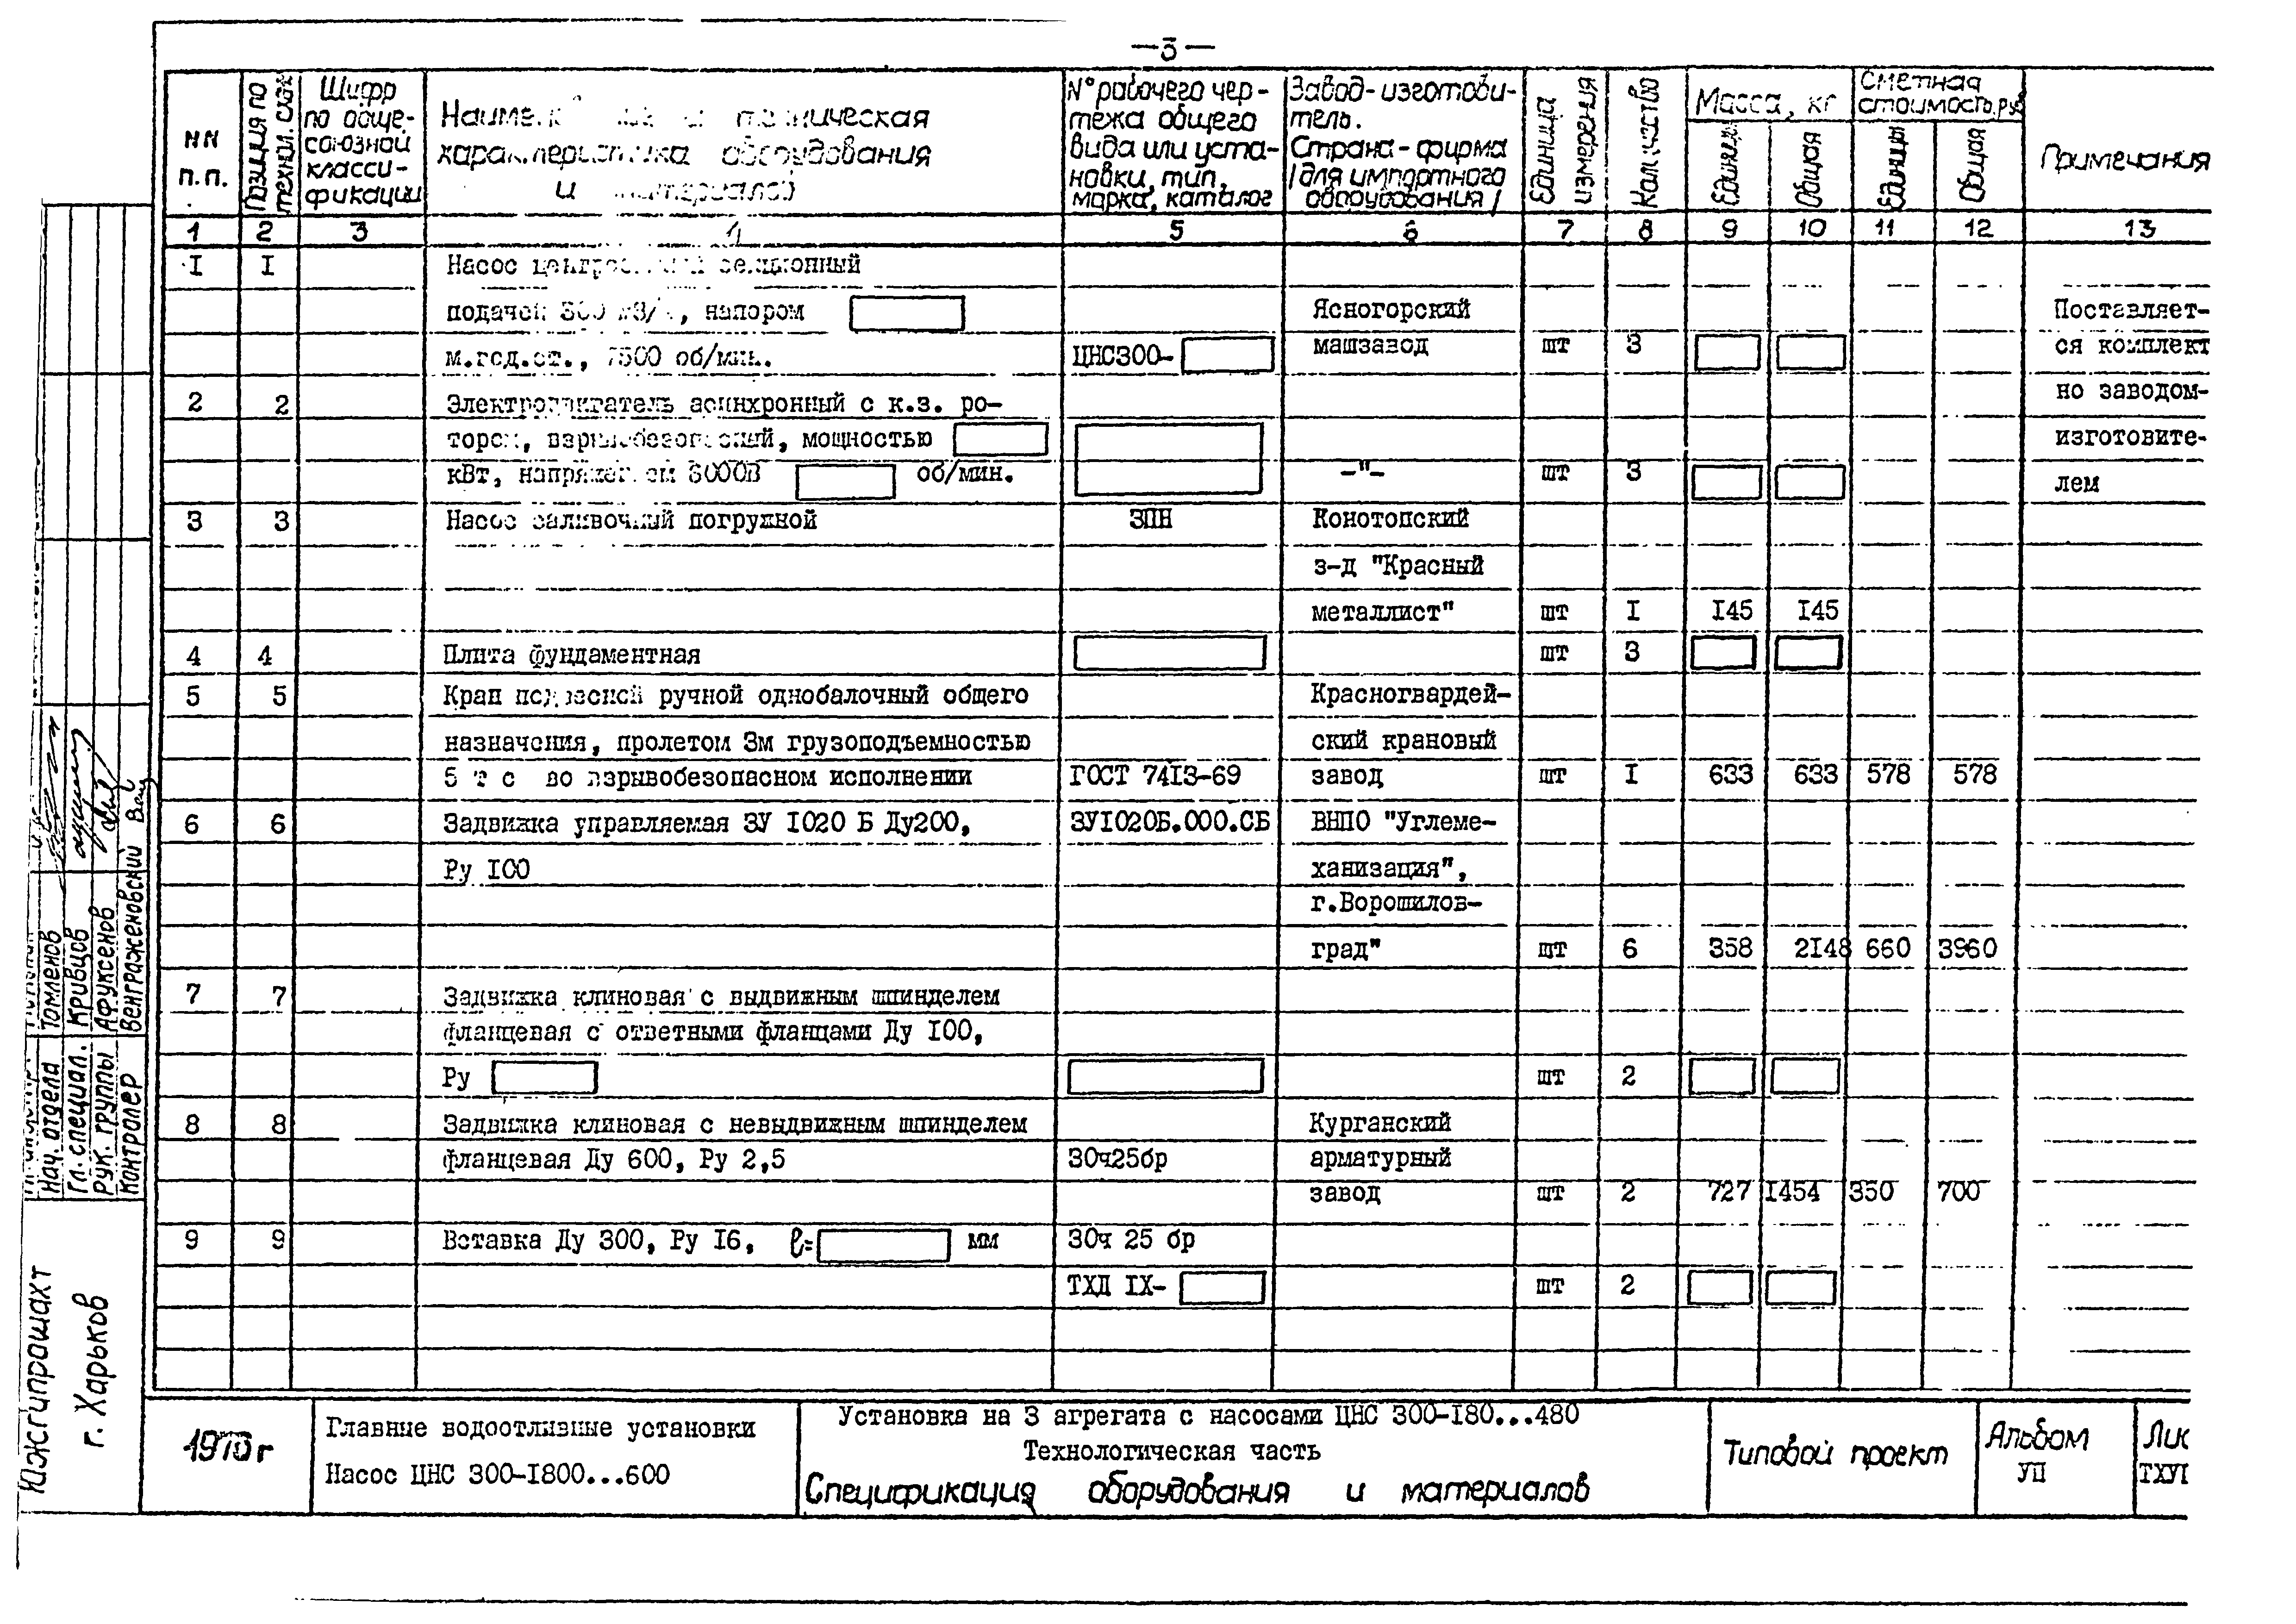 —3—
NN п.п.
Позиция по технол. схеме
Шифр по обще-союзной класси-фикации
Наименование и техническая
характеристика оборудования
и материалов
N° рабочего чер-
тежа общего
вида или уста-
новки, тип,
марка, каталог
Завод-изготови-
тель.
Страна-фирма
/для импортного
оборудования/
Единица измерения
Количество
Масса, кг
Единицы
Общая
Сметная
стоимость, руб
Единицы
Общая
Примечания
1 2 3 4 5 6 7 8 9 10 11 12 13
I I Насос секционный
подачей 300 м3/ч, напором Ясногорский Поставляет-
м.вод.ст., об/мин. ЦНС300- машзавод шт 3 ся комплект
2 2 Электродвигатель асинхронный с к.з. ро- но заводом-
тором, взрывобезопасный, мощностью изготовите-
кВт, напряжением об/мин. -"- шт 3 лем
3 3 Насос заливочный погружной ЗПН Конотопский
з-д "Красный
металлист" шт I I45 I45
4 4 Плита фундаментная шт 3
5 5 Кран подвесной ручной однобалочный общего Красногвардей-
назначения, пролетом 3м грузоподъемностью ский крановый
5 т с во взрывобезопасном исполнении ГОСТ 74I3-69 завод шт I 633 633 578 578
6 6 Задвижка управляемая ЗУ I020 Б Ду200, ЗУI020Б.000.СБ ВНПО "Углеме-
Ру I00 ханизация",
г.Ворошилов-
град" шт 6 358 2I48 660 3960
7 7 Задвижка клиновая с выдвижным шпинделем
фланцевая с ответными фланцами Ду I00,
Ру шт 2
8 8 Задвижка клиновая с невыдвижным шпинделем Курганский
фланцевая Ду 600, Ру 2,5 30ч25бр арматурный
завод шт 2 727 I454 350 700
9 9 Вставка Ду 300, Ру I6, ℓ= мм 30ч 25 бр
ТХД IX- шт 2
Нач. отдела Томленов
Гл. специал. Кривцов
Рук. группы Афуксенов
Контролер Венграженовский
Южгипрошахт
г. Харьков
Главные водоотливные установки
Насос ЦНС 300-I800...600
Установка на 3 агрегата с насосами ЦНС 300-I80...480
Технологическая часть
Спецификация оборудования и материалов
Типовой проект
Альбом
УП